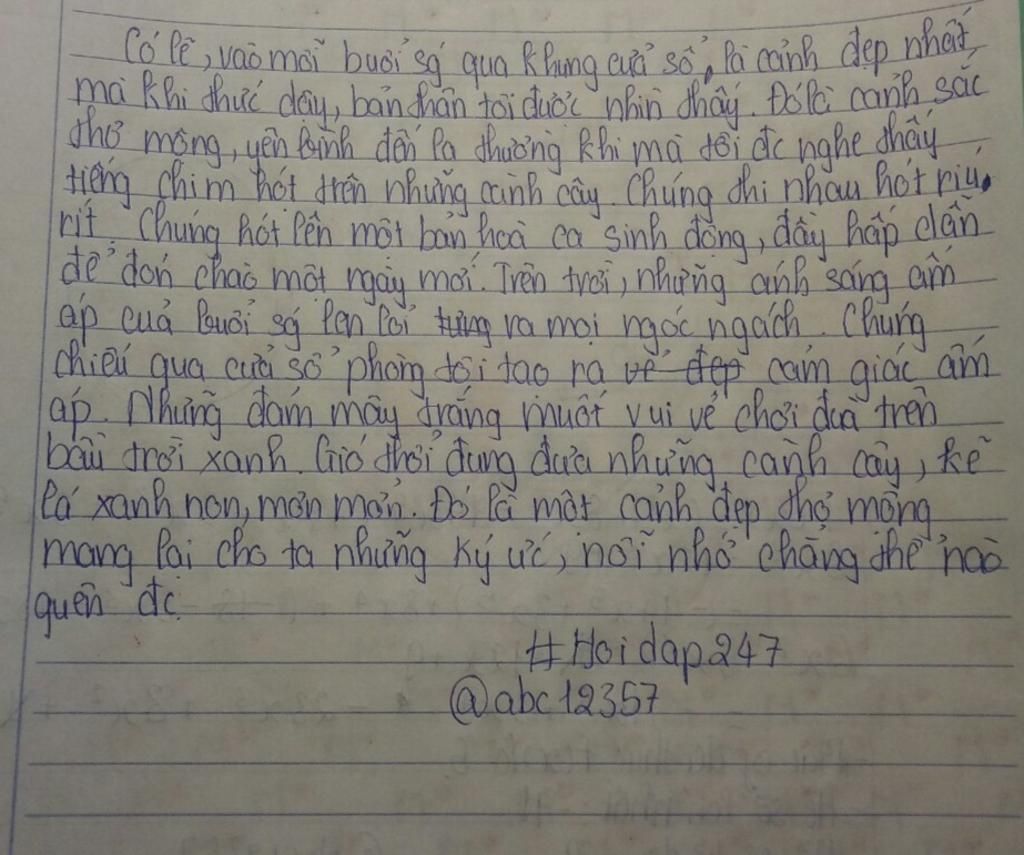 Có lẽ, vào mỗi buổi sg qua khung cửa sổ, là cảnh đẹp nhất,
mà khi thức dậy, bản thân tôi được nhìn thấy. Đó là cảnh sắc
thơ mộng, yên bình đến lạ thường khi mà tôi đc nghe thấy
tiếng chim hót trên những cành cây. Chúng thi nhau hót ríu
rít. Chúng hót lên một bản hoà ca sinh động, đầy hấp dẫn
để đón chào một ngày mới. Trên trời, những ánh sáng ấm
áp của buổi sg len lỏi từng ra mọi ngóc ngách. Chúng
chiếu qua cửa sổ phòng tôi tạo ra vẻ đẹp cảm giác ấm
áp. Những đám mây trắng muốt vui vẻ chơi đùa trên
bầu trời xanh. Gió thổi đung đưa những cành cây, kẽ
lá xanh non, mơn mởn. Đó là một cảnh đẹp thơ mộng
mang lại cho ta những ký ức, nỗi nhớ chẳng thể nào
quên đc.
#Hoidap247
@abc12357